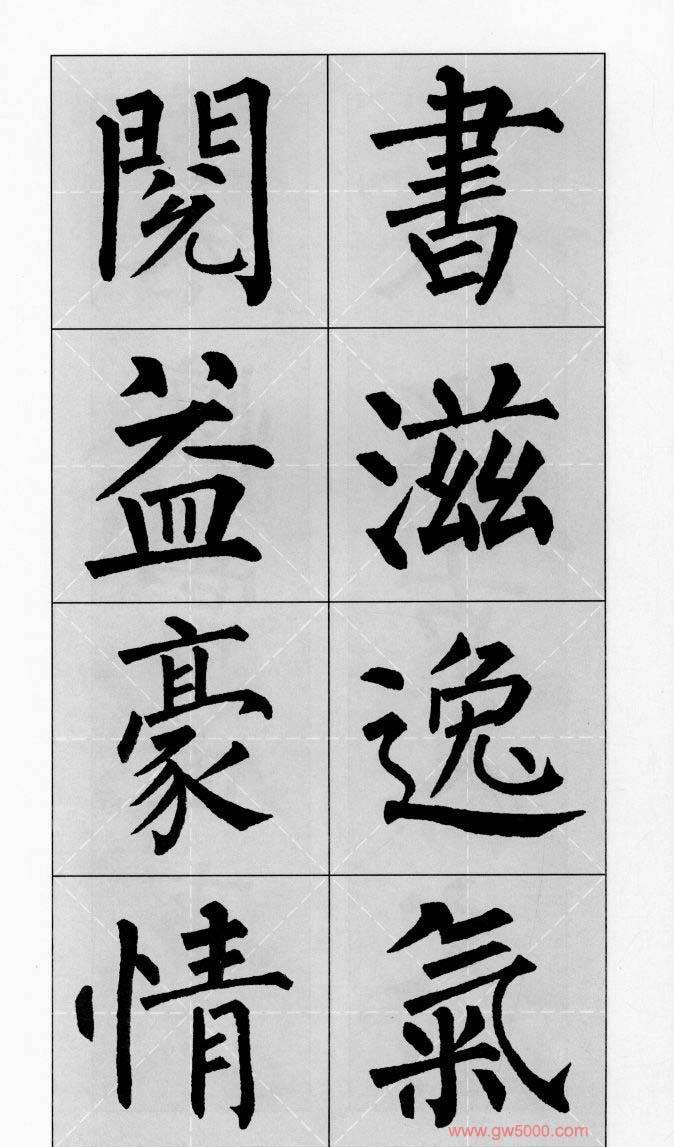 書滋逸氣
閱益豪情
www.gw5000.com